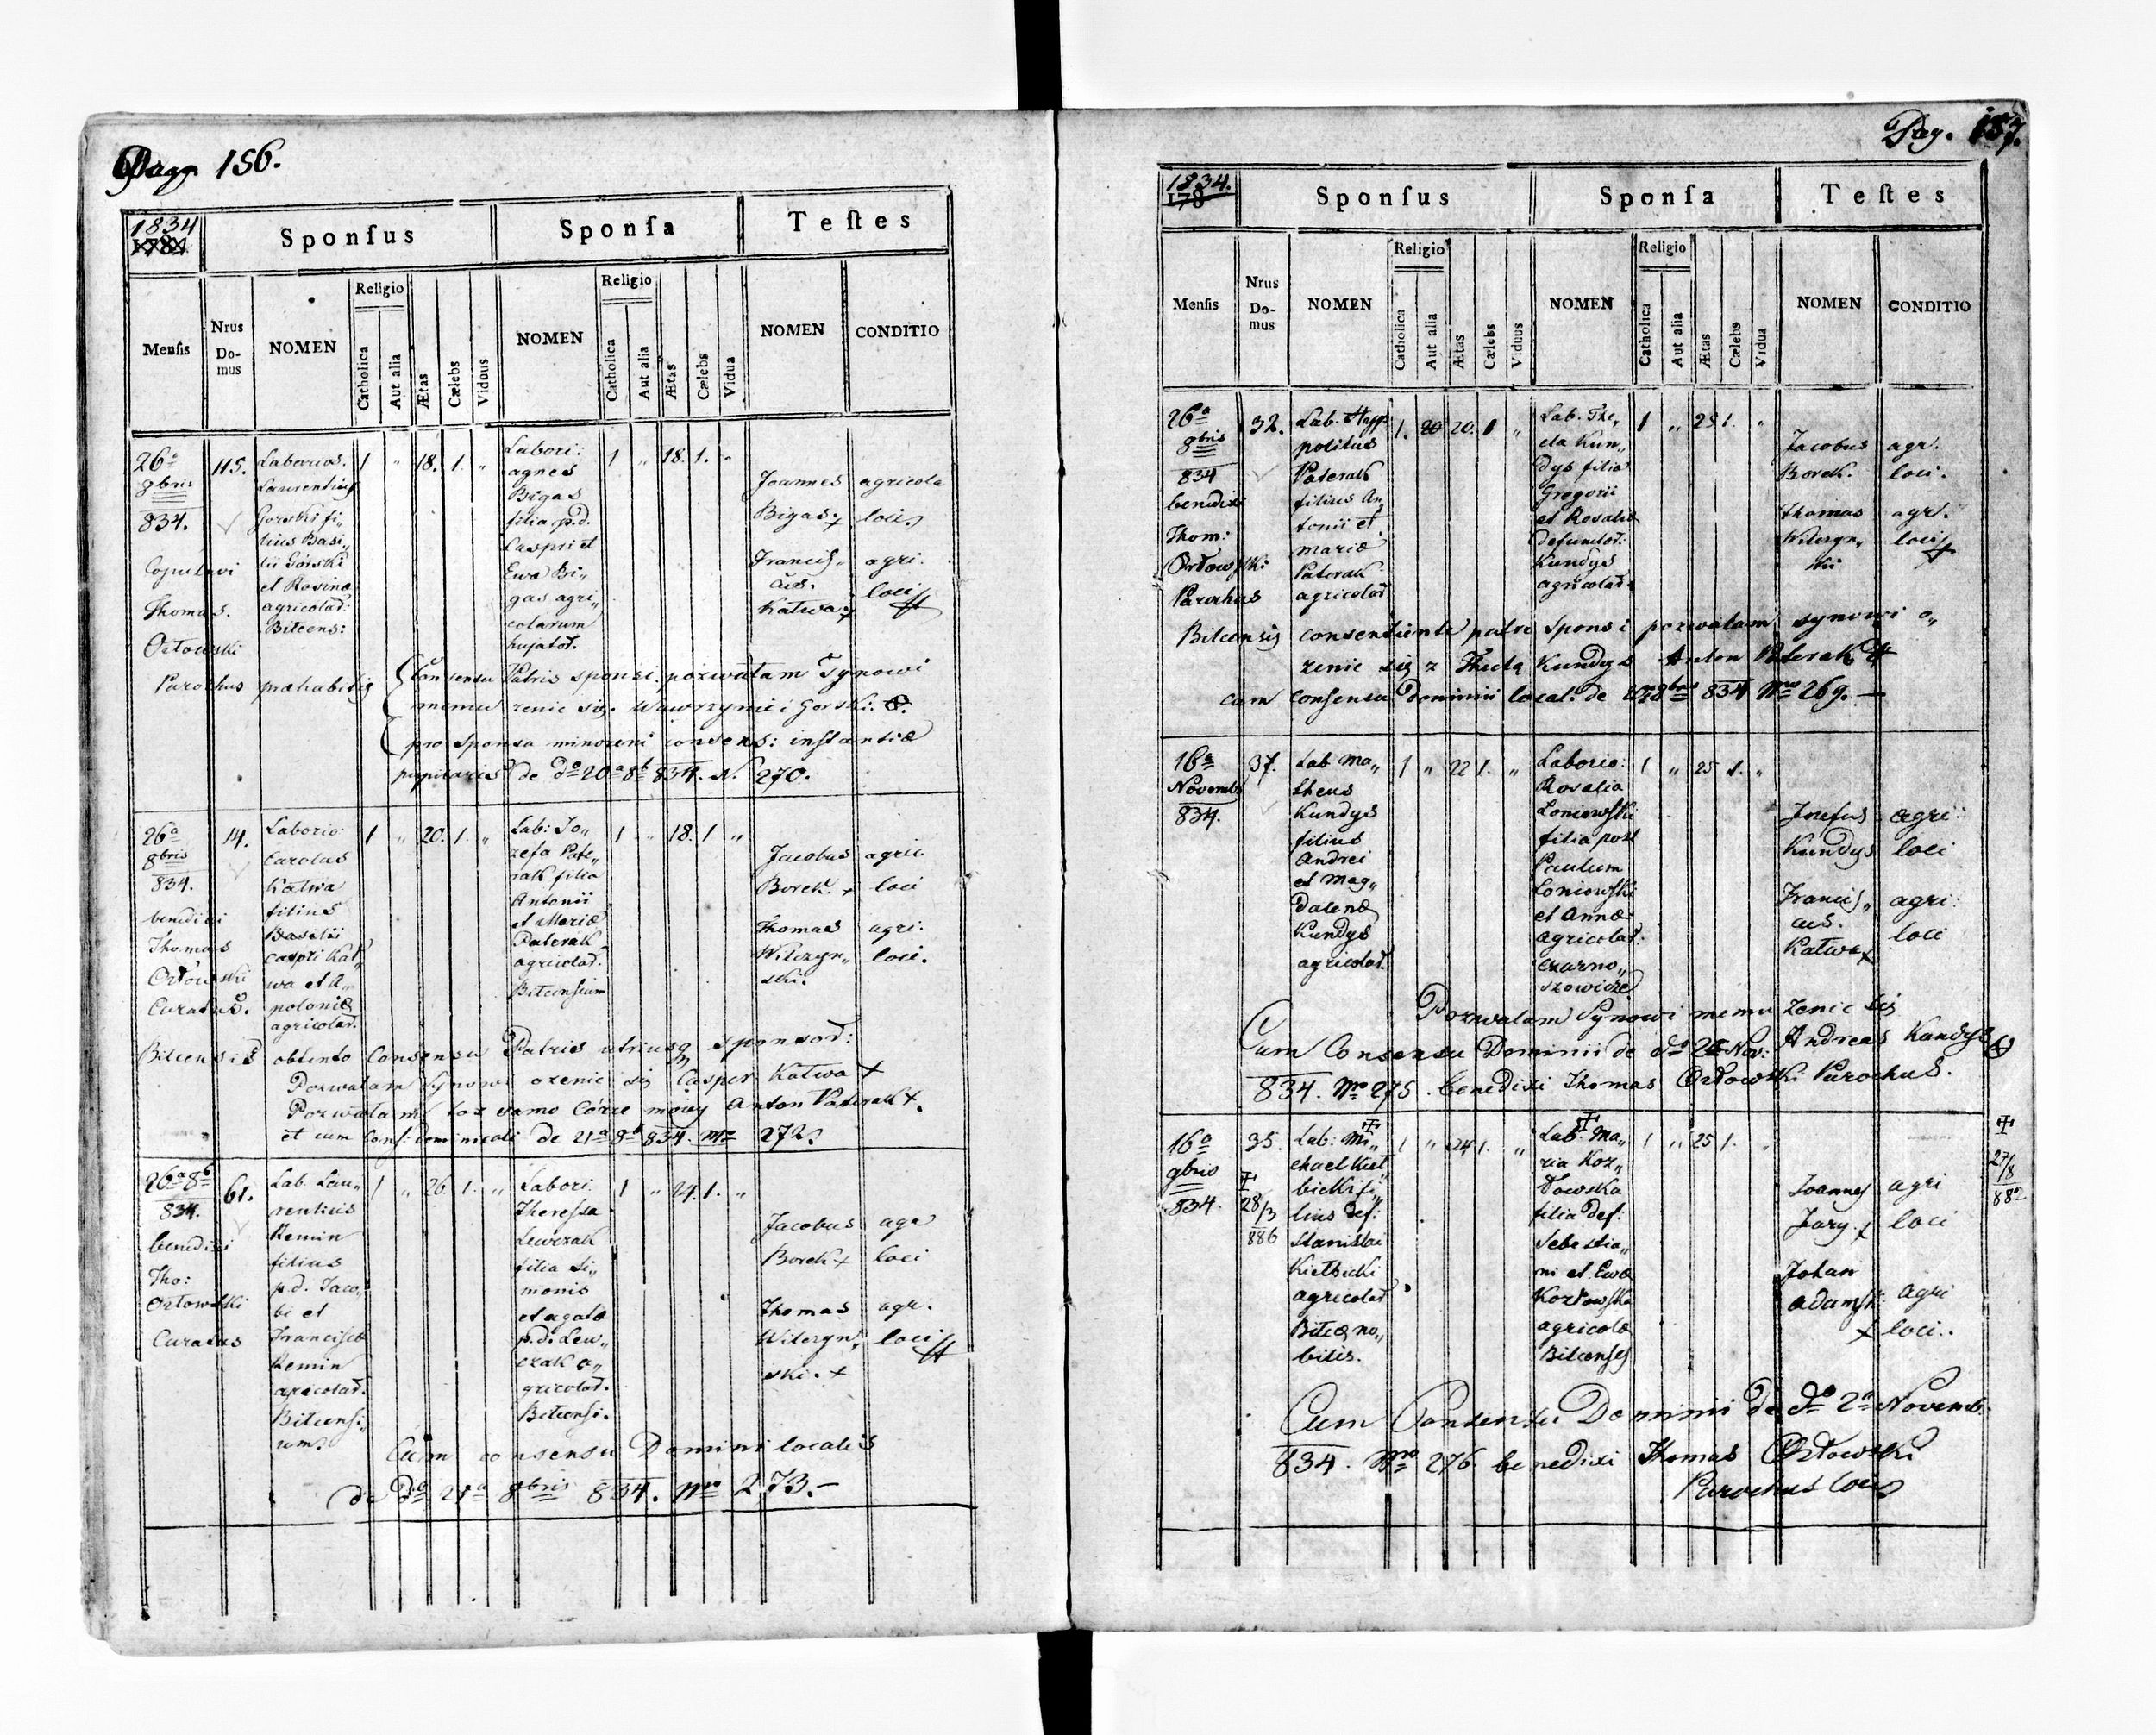 Pag. 156.
1834
Sponſus
Sponſa
Teſtes
Menſis
Nrus Domus
NOMEN
Religio
Catholica
Aut alia
Ætas
Cælebs
Viduus
NOMEN
Religio
Catholica
Aut alia
Ætas
Cælebs
Vidua
NOMEN
CONDITIO
26a
8bris
834.
Copulavi
Thomas
Orłowski
Parochus
115.
Laborios.
Laurentius
Gorski fi„
lius Basi„
lii Górski
et Rosinæ
agricolar:
Bitcens:
1 „ 18. 1. „
Labori:
agnes
Bigas
filia p.d.
Caspri et
Ewæ Bi„
gas agri„
colarum
hujator.
1 „ 18. 1. „
Joannes
Bigas +
Francis„
cus
Katwa +
agricola
loci
agri.
loci
præhabitis Consensu Patris sponsi pozwalam Synowi
memu zenic się. Wawrzyniei Gorski.
pro sponsa minoreni consens: instantiæ
pupilaris de do 20a 8b 834. N. 270.
26a
8bris
834.
benedixi
Thomas
Orłowski
Curatus.
14.
Laborio:
Carolus
Katwa
filius
Caspri Kat„
wa et A„
poloniæ
agricolar.
1 „ 20. 1. „
Lab: Jo„
zefa Pate„
rak filia
Antonii
et Mariæ
Paterak
agricolar.
Bitcensium
1 „ 18. 1 „
Jacobus
Borek. +
Thomas
Wilczyn„
ski.
agric.
loci
agri.
loci.
Bitcensis obtento Consensu Patris utriusq sponsor:
Pozwalam Synowi ozenic się Casper Katwa +
Pozwalam toz samo Córze moiey Anton Paterak +.
et cum Cons: dominicali de 21a 8b 834. Nro 272.
26a 8b
834.
benedixi
Tho:
Orłowski
Curatus
61.
Lab. Lau„
rentius
Remin
filius
p.d. Jaco„
bi et
Franciscæ
Remin
agricolar.
Bitcensi„
um
1 „ 26. 1. „
Labori.
Theressa
Lewczak
filia Si„
monis
et agatæ
p.d. Lew„
czak a„
gricolar.
Bitcensi.
1 „ 24. 1. „
Jacobus
Borek +
Thomas
Wilczyn„
ski. +
agr
loci
agr.
loci
Cum consensu Domini localis
de do 21a 8bris 834. Nro 273.–
Pag. 157.
1834.
178
Sponſus
Sponſa
Teſtes
Menſis
Nrus Domus
NOMEN
Religio
Catholica
Aut alia
Ætas
Cælebs
Viduus
NOMEN
Religio
Catholica
Aut alia
Ætas
Cælebs
Vidua
NOMEN
CONDITIO
26a
8bris
834
benedixi
Thom:
Orłowski
Parochus
32.
Lab. Hyp
politus
Paterak
filius An„
tonii et
mariæ
Paterak
agricolar.
1. 20 20. 1 „
Lab. The„
cla Kun„
dys filia
Gregorii
et Rosaliæ
defunctor:
Kundys
agricolar.
1 „ 25 1. „
Jacobus
Borek.
Thomas
Wilczyn„
ski
agr.
loci.
agr.
loci
Bitcensis consentiente patre Sponsi pozwalam synowi o„
zenic się z Theclą Kundys Anton Paterak
cum Consensu Dominii local. de 20a 8bris 834 Nro 269. —
16a
Novemb
834.
37.
Lab Ma„
theus
Kundys
filius
Andrei
et Mag„
dalenæ
Kundys
agricolar.
1 „ 22 1. „
Laborio:
Rosalia
Loniowski
filia post
Paulum
Loniowski
et Annæ
agricolar:
czarno„
szowicze
1 „ 25 1. „
Josefus
Kundys
Francis„
cus.
Katwa +
agri:
loci
agri:
loci
Pozwalam Synowi memu zenic się
Andreas Kundys
Cum Consensu Dominii de do Nov:
834. Nro 275. benedixi Thomas Orłowski Parochus.
16a
9bris
834.
35.
28/3
886
Lab: Mi„
chael Kieł
bicki fi„
lius def:
Stanislai
Kiełbicki
agricolar
Bitcæ no„
bilis.
1 „ 24 1. „
Lab: Ma„
ria Koz„
łowska
filia def:
Sebestia„
ni et Ewæ
Kozłowska
agricolæ
Bitcenses
1 „ 25 1. „
Joannes
Jary. +
Johan
Adamski
+
agri
loci
agri
loci..
27/8
882
Cum Consensu Dominii de do 2a Novemb.
834. Nro 276 benedixi Thomas Orłowski
Parochus loci